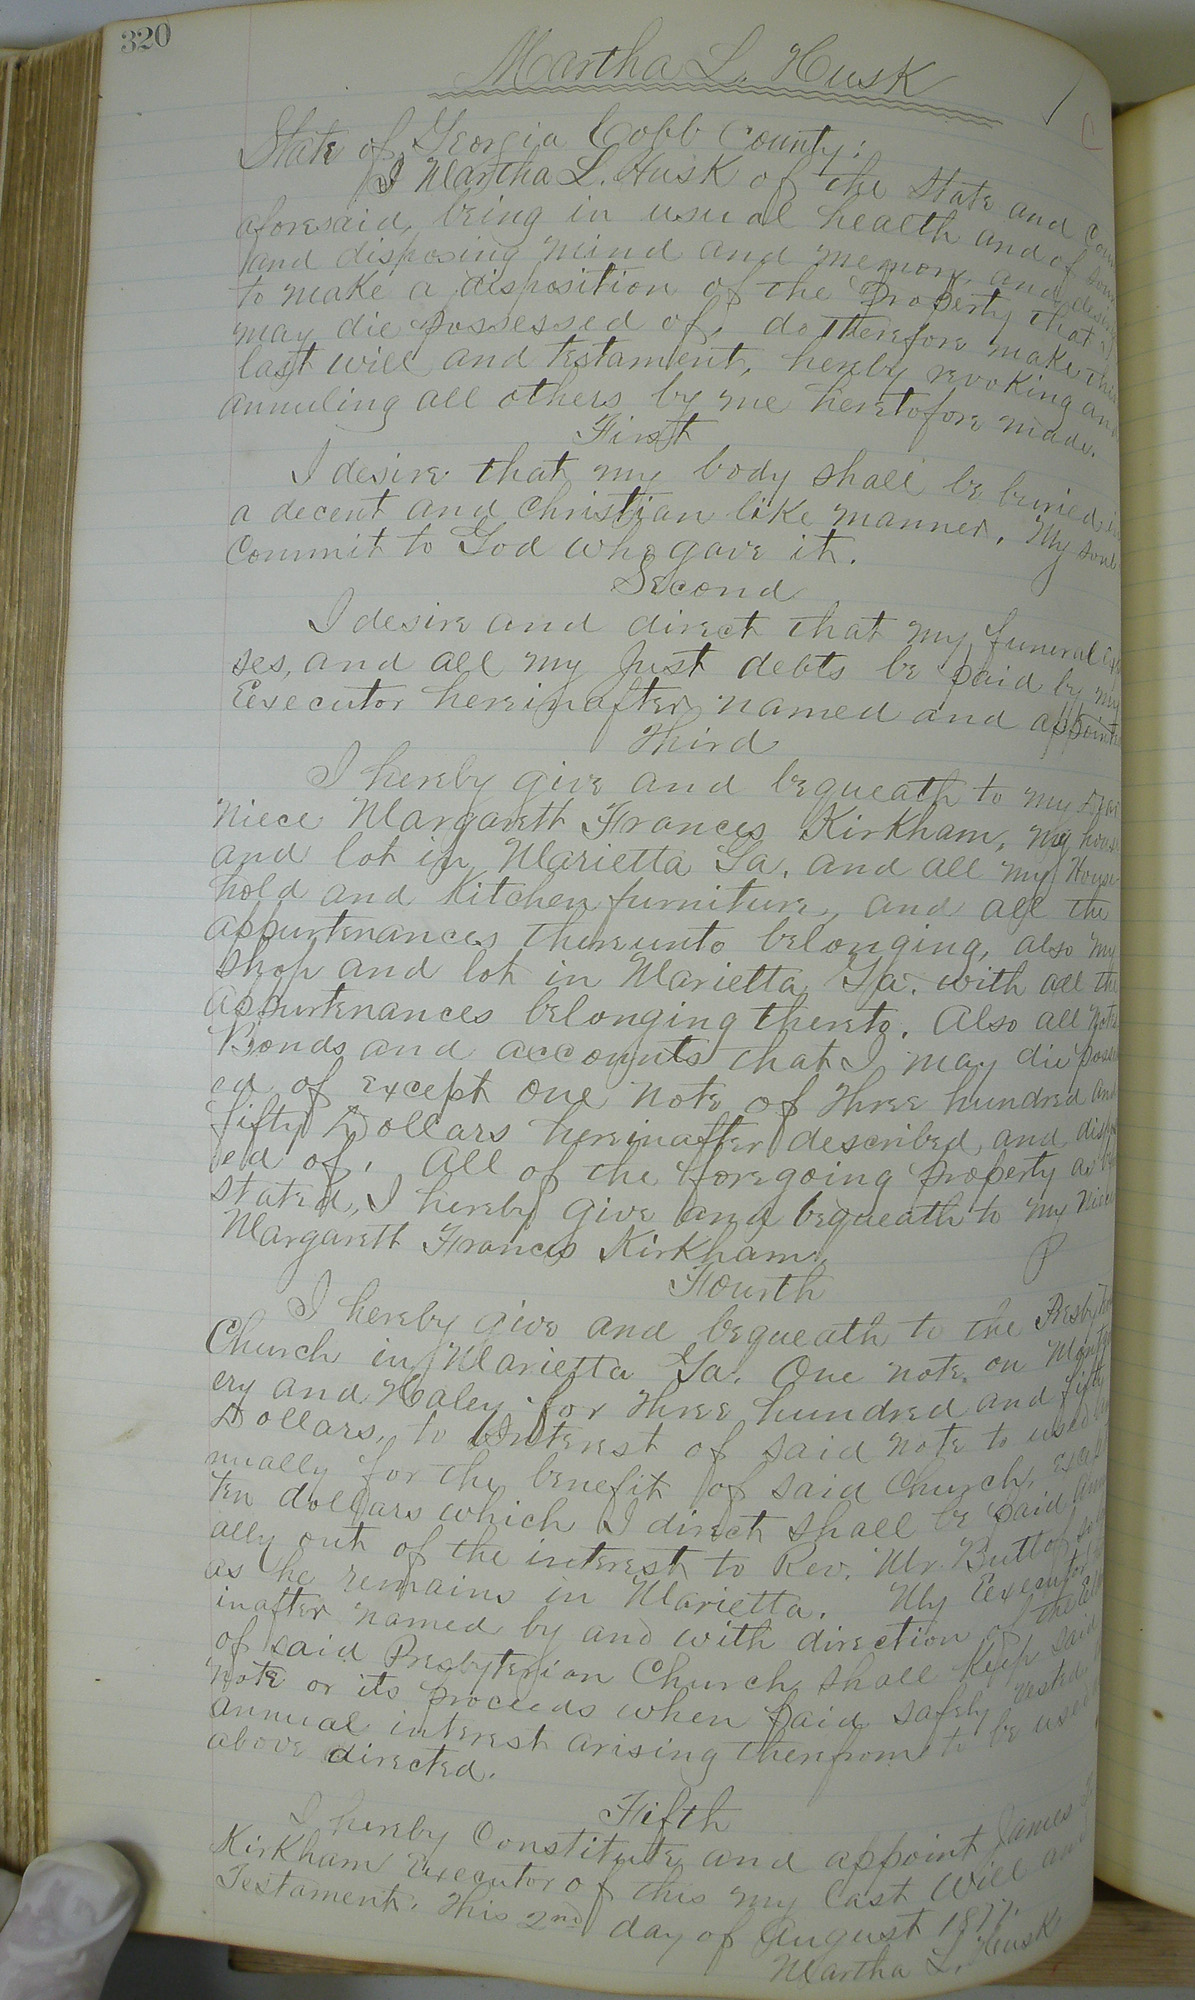 320
Martha L. Husk
State of Georgia Cobb County:
I Martha L. Husk of the State and Coun
aforesaid, being in usual health and of soun
and disposing mind and memory, and desiri
to make a disposition of the Property that I
may die possessed of, do therefore make this
last will and testament, hereby revoking and
annuling all others by me heretofore made.
First
I desire that my body shall be buried in
a decent and Christian like manner, My soul
Commit to God who gave it.
Second
I desire and direct that my funeral exp
ses, and all my just debts be paid by my
Eexecutor hereinafter named and appointe
Third
I hereby give and bequeath to my Dear
Niece Margarett Frances Kirkham, my hous
and lot in Marietta Ga. and all my House
hold and Kitchen furniture, and all the
appurtenances thereunto belonging, also my
Shop and lot in Marietta Ga. with all the
appurtenances belonging thereto. Also all Note
Bonds and accounts that I may die posse
ed of except one note of three hundred and
fifty Dollars hereinafter described and disp
ed of. All of the foregoing property as
stated, I hereby give and bequeath to my Niece
Margarett Francis Kirkham.
Fourth
I hereby give and bequeath to the Presbyter
Church in Marietta Ga. One note on Montg
ery and Haley for three hundred and fifty
Dollars, to Interest of said note to used
nually for the benefit of said Church, except
ten dollars which I direct shall be paid annu
ally out of the interest to Rev. Mr. Buttolf so
as he remains in Marietta. My Eexecutor
inafter named by and with direction of the
of said Presbyterian Church shall keep said
note or its proceeds when paid safely vested
annual interest arising therefrom to be used
above directed.
Fifth
I hereby Constitute and appoint James
Kirkham executor of this my last Will and
Testament. This 2nd day of August 1877.
Martha L. Husk